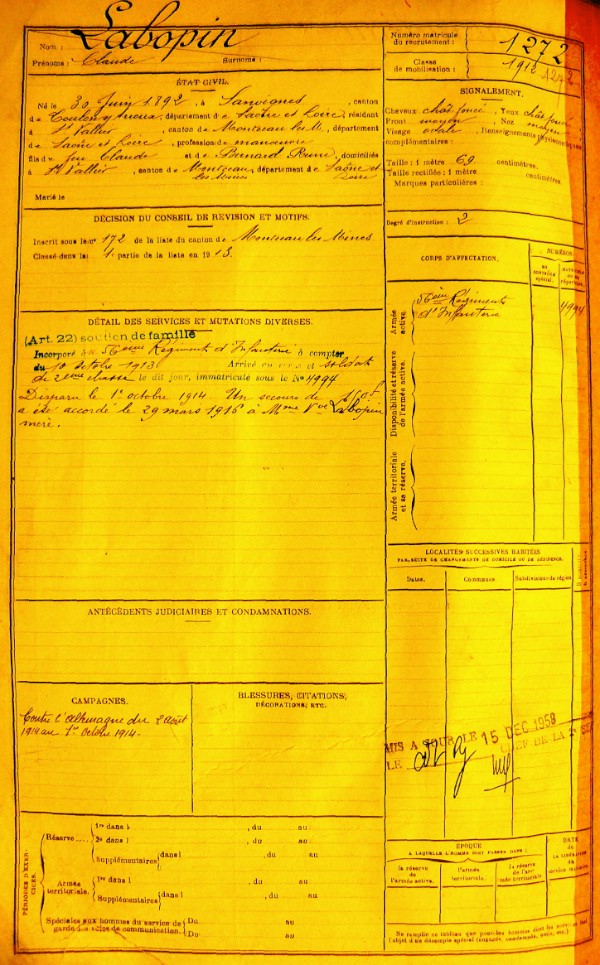 Nom : Labopin
Prénoms : Claude Surnoms :
ÉTAT CIVIL.
Né le 30 Juin 1892, à Sanvignes, canton
de Toulon s/ Arroux, département de Saône et Loire, résidant
à St Vallier, canton de Montceau les M., département
de Saône et Loire, profession de manœuvre
fils de feu Claude et de Bernard, domiciliés
à St Vallier, canton de Montceau les Mines, département de Saône et Loire
Marié le
DÉCISION DU CONSEIL DE REVISION ET MOTIFS.
Inscrit sous le n° 172 de la liste du canton de Montceau les Mines
Classé dans la 1 partie de la liste en 1913.
DÉTAIL DES SERVICES ET MUTATIONS DIVERSES.
(Art. 22) soutien de famille
Incorporé à 56ème Régiment d'Infanterie à compter
du 10 octobre 1913. Arrivé au corps et soldat
de 2ème classe le dit jour, immatriculé sous le N° 4994
Disparu le 1er octobre 1914. Un secours de 150f
a été accordé le 29 mars 1916 à Mme Vve Labopin
mère.
ANTÉCÉDENTS JUDICIAIRES ET CONDAMNATIONS.
CAMPAGNES.
Contre l'Allemagne du 2 Août
1914 au 1er Octobre 1914.
BLESSURES, CITATIONS,
DÉCORATIONS, ETC.
PÉRIODES D'EXERCICES.
Réserve
1re dans l , du au
2e dans l , du au
Supplémentaires dans l , du au
, du au
Armée territoriale.
1re dans l , du au
Supplémentaires dans l , du au
, du au
Spéciales aux hommes du service de
garde des voies de communication.
Du au
Du au
Numéro matricule
du recrutement : 1272
Classe
de mobilisation : 1912
1272
SIGNALEMENT.
Cheveux chât. foncé Yeux chât. foncé
Front moyen Nez moyen
Visage ovale Renseignements physionomiques
complémentaires :
Taille : 1 mètre 69 centimètres.
Taille rectifiée : 1 mètre centimètres.
Marques particulières :
Degré d'instruction : 2
CORPS D'AFFECTATION.
NUMÉROS
au contrôle spécial.
matricule ou au répertoire.
Armée active.
56ème Régiment
d'Infanterie
4994
Disponibilité et réserve de l'armée active.
Armée territoriale et sa réserve.
LOCALITÉS SUCCESSIVES HABITÉES
PAR SUITE DE CHANGEMENTS DE DOMICILE OU DE RÉSIDENCE.
Dates.
Communes
Subdivision de région
MIS A JOUR LE 15 DEC 1958
LE CHEF DE LA
ÉPOQUE
A LAQUELLE L'HOMME DOIT PASSER DANS :
la réserve de l'armée active.
l'armée territoriale.
la réserve de l'armée territoriale
DATE
de
LA LIBÉRATION
du
service militaire